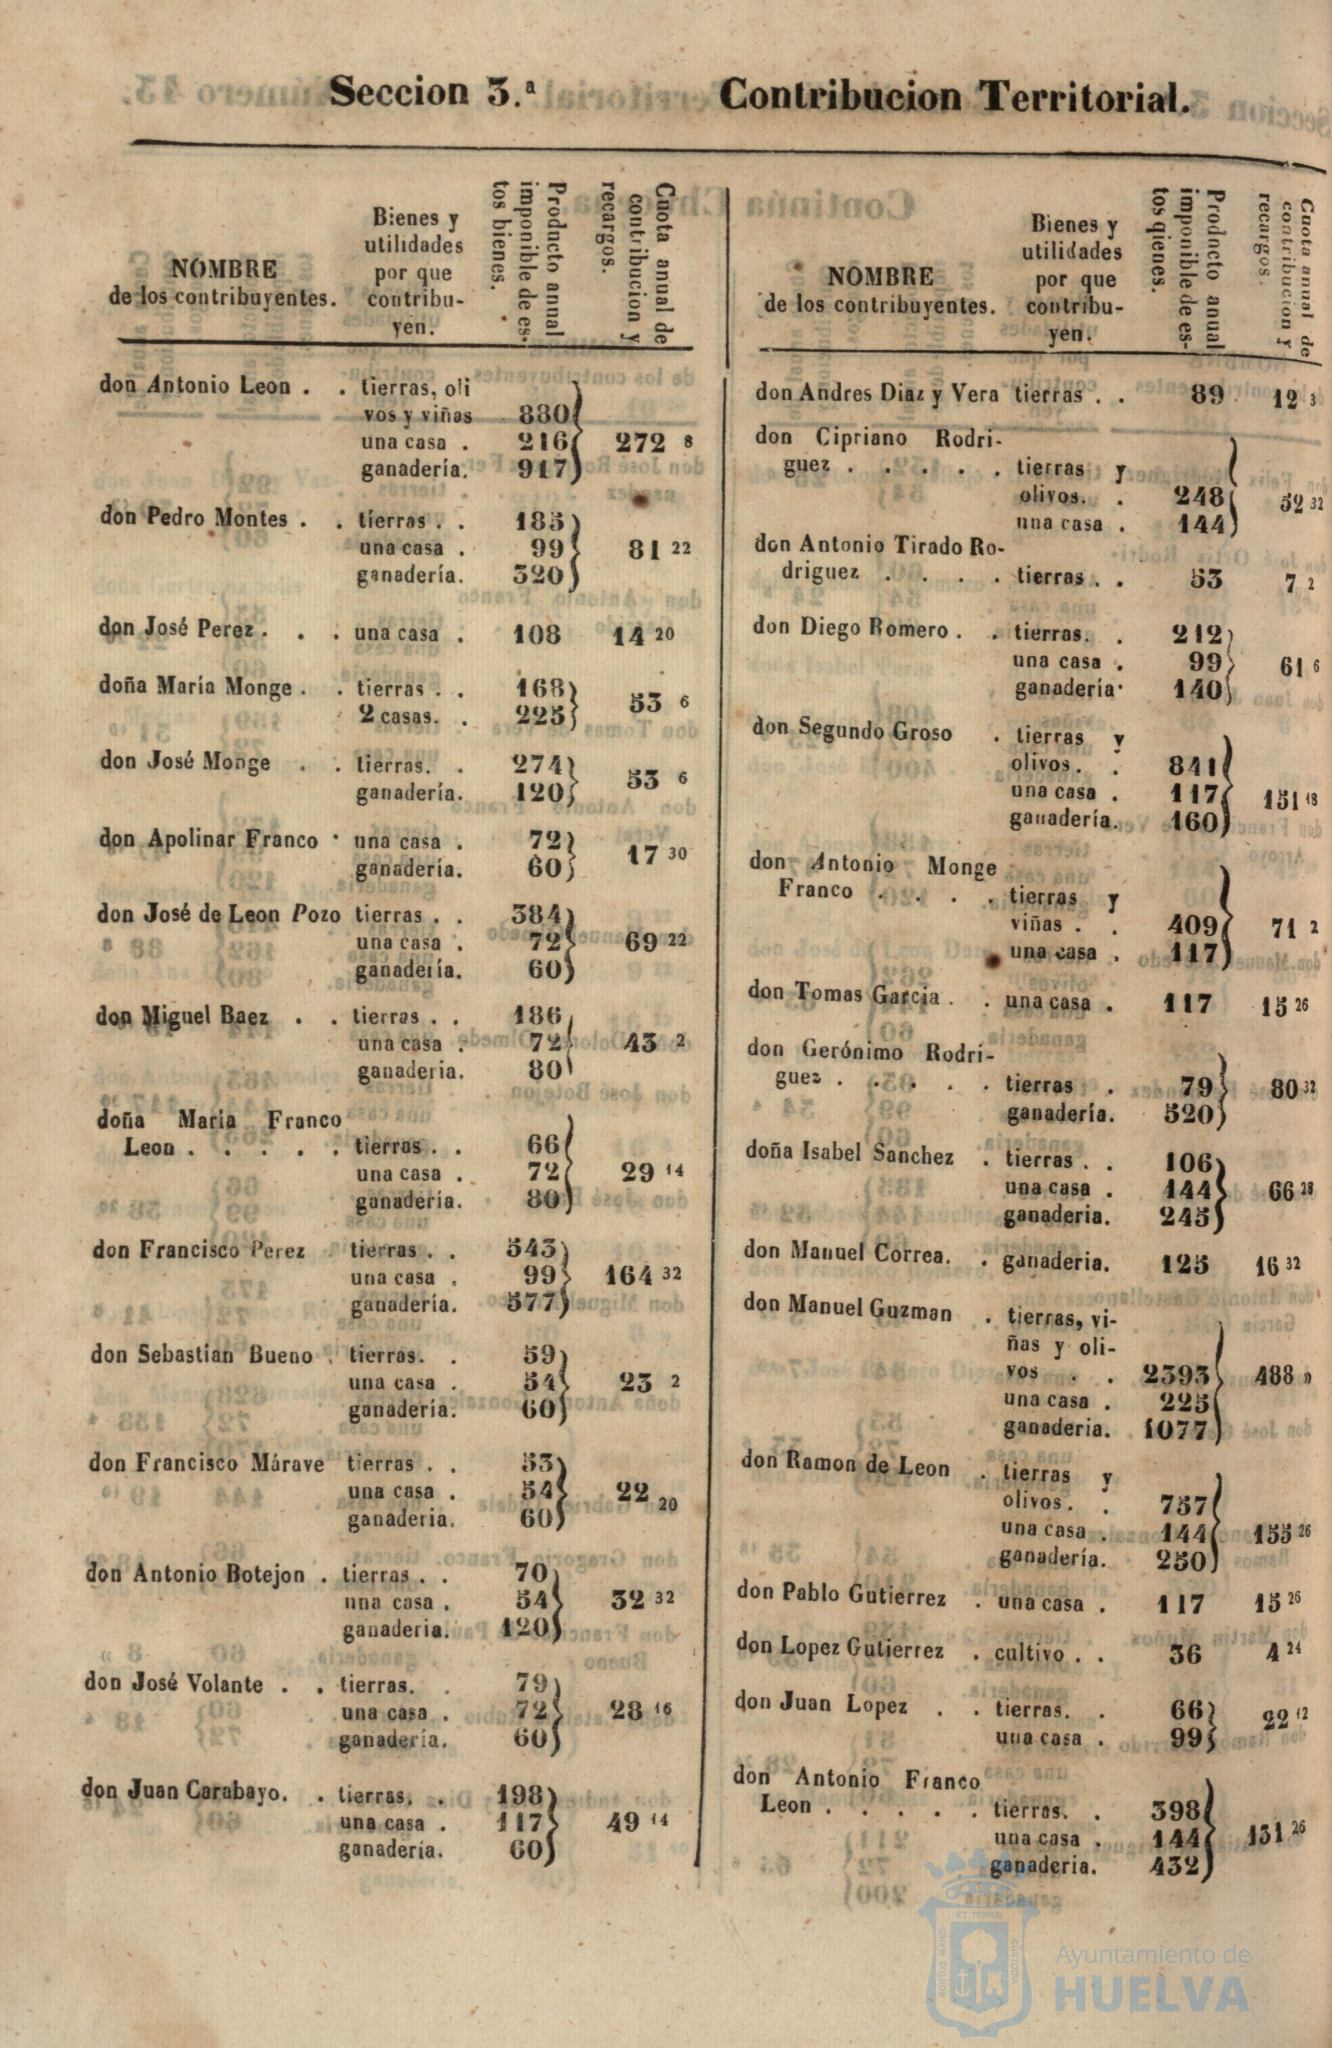 Seccion 3.ª Contribucion Territorial.
NOMBRE
de los contribuyentes.
Bienes y
utilidades
por que
contribu-
yen.
Producto anual
imponible de es-
tos bienes.
Cuota anual de
contribucion y
recargos.
don Antonio Leon . . tierras, oli
vos y viñas 880
una casa . 216 272 8
ganadería. 917
don Pedro Montes . . tierras . . 185
una casa . 99 81 22
ganadería. 320
don José Perez . . . una casa . 108 14 20
doña María Monge . . tierras . . 168
2 casas. . 225 53 6
don José Monge . . tierras. . 274
ganadería. 120 53 6
don Apolinar Franco · una casa . 72
ganadería. 60 17 30
don José de Leon Pozo tierras . . 384
una casa . 72 69 22
ganadería. 60
don Miguel Baez . . tierras . . 186
una casa . 72 43 2
ganaderia. 80
doña María Franco
Leon . . . . . . tierras . . 66
una casa . 72 29 14
ganadería. 80
don Francisco Perez tierras . . 543
una casa . 99 164 32
ganadería. 577
don Sebastian Bueno . tierras. . 59
una casa . 54 23 2
ganadería. 60
don Francisco Márave tierras . . 53
una casa . 54 22 20
ganaderia. 60
don Antonio Botejon . tierras . . 70
una casa . 54 32 32
ganaderia. 120
don José Volante . . tierras. . 79
una casa . 72 28 16
ganadería. 60
don Juan Carabayo. . tierras. . 198
una casa . 117 49 14
ganadería. 60
NOMBRE
de los contribuyentes.
Bienes y
utilidades
por que
contribu-
yen.
Producto anual
imponible de es-
tos qienes.
Cuota anual de
contribucion y
recargos.
don Andres Diaz y Vera tierras . . 89 12 3
don Cipriano Rodri-
guez . . . . . . tierras y
olivos. . 248 52 32
una casa . 144
don Antonio Tirado Ro-
driguez . . . . . tierras . . 53 7 2
don Diego Romero . . tierras. . 212
una casa . 99 61 6
ganadería· 140
don Segundo Groso . tierras y
olivos. . 841
una casa . 117 151 18
ganadería. 160
don Antonio Monge
Franco . . . . . tierras y
viñas . . 409 71 2
una casa . 117
don Tomas Garcia . . una casa . 117 15 26
don Gerónimo Rodri-
guez . . . . . . tierras . 79 80 32
ganadería. 520
doña Isabel Sanchez . tierras . . 106
una casa . 144 66 28
ganaderia. 245
don Manuel Correa. . ganaderia. 125 16 32
don Manuel Guzman . tierras, vi-
ñas y oli-
vos . . 2393 488 »
una casa . 225
ganaderia. 1077
don Ramon de Leon . tierras y
olivos. . 757
una casa . 144 155 26
ganadería. 250
don Pablo Gutierrez . una casa . 117 15 26
don Lopez Gutierrez . cultivo . . 36 4 24
don Juan Lopez . . tierras. . 66
una casa . 99 22 12
don Antonio Franco
Leon . . . . . . tierras. . 398
una casa . 144 131 26
ganaderia. 432
ET TERRA
PORTUS MARIS
CUSTODIA
Ayuntamiento de
HUELVA